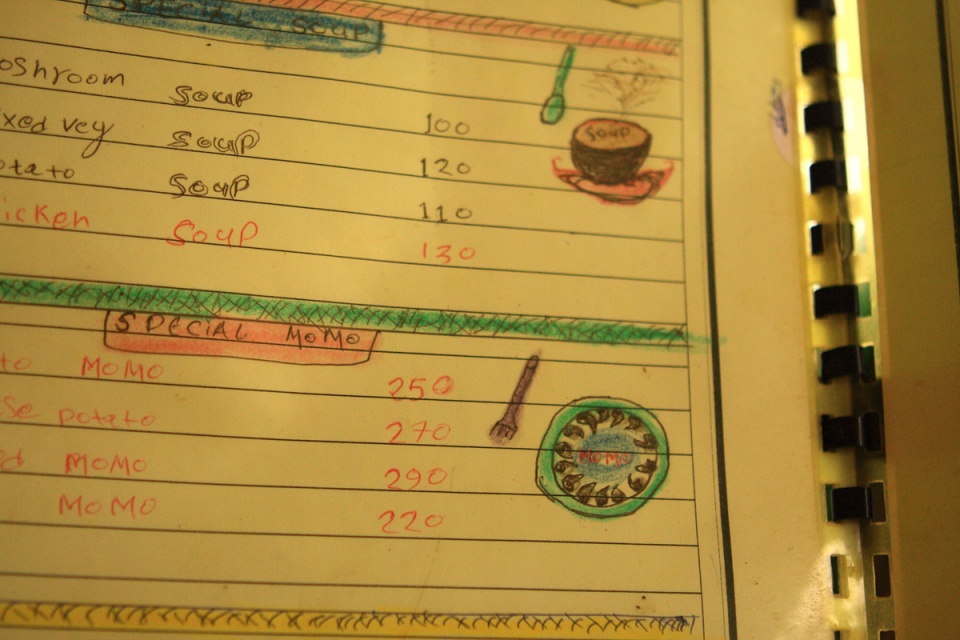 SPECIAL SOUP
oshroom Soup 100
SOUP
xed vey Soup 120
otato Soup 110
icken Soup 130
SPECIAL MOMO
to MOMO 250
se potato 270
MOMO
ed MOMO 290
MOMO 220